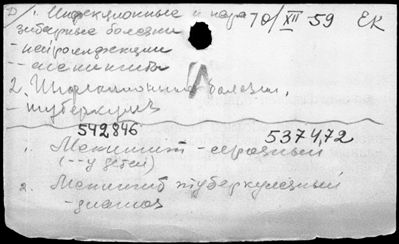 D/1. Инфекционные и пара 70/XII 59 ЕК
зитарные болезни
- нейроинфекции
-- менингиты
2. Инфекционные болезни.
- туберкулез
542846 5374,72
1. Менингит - серозный
(-- у детей)
2. Менингит туберкулезный
- диагноз